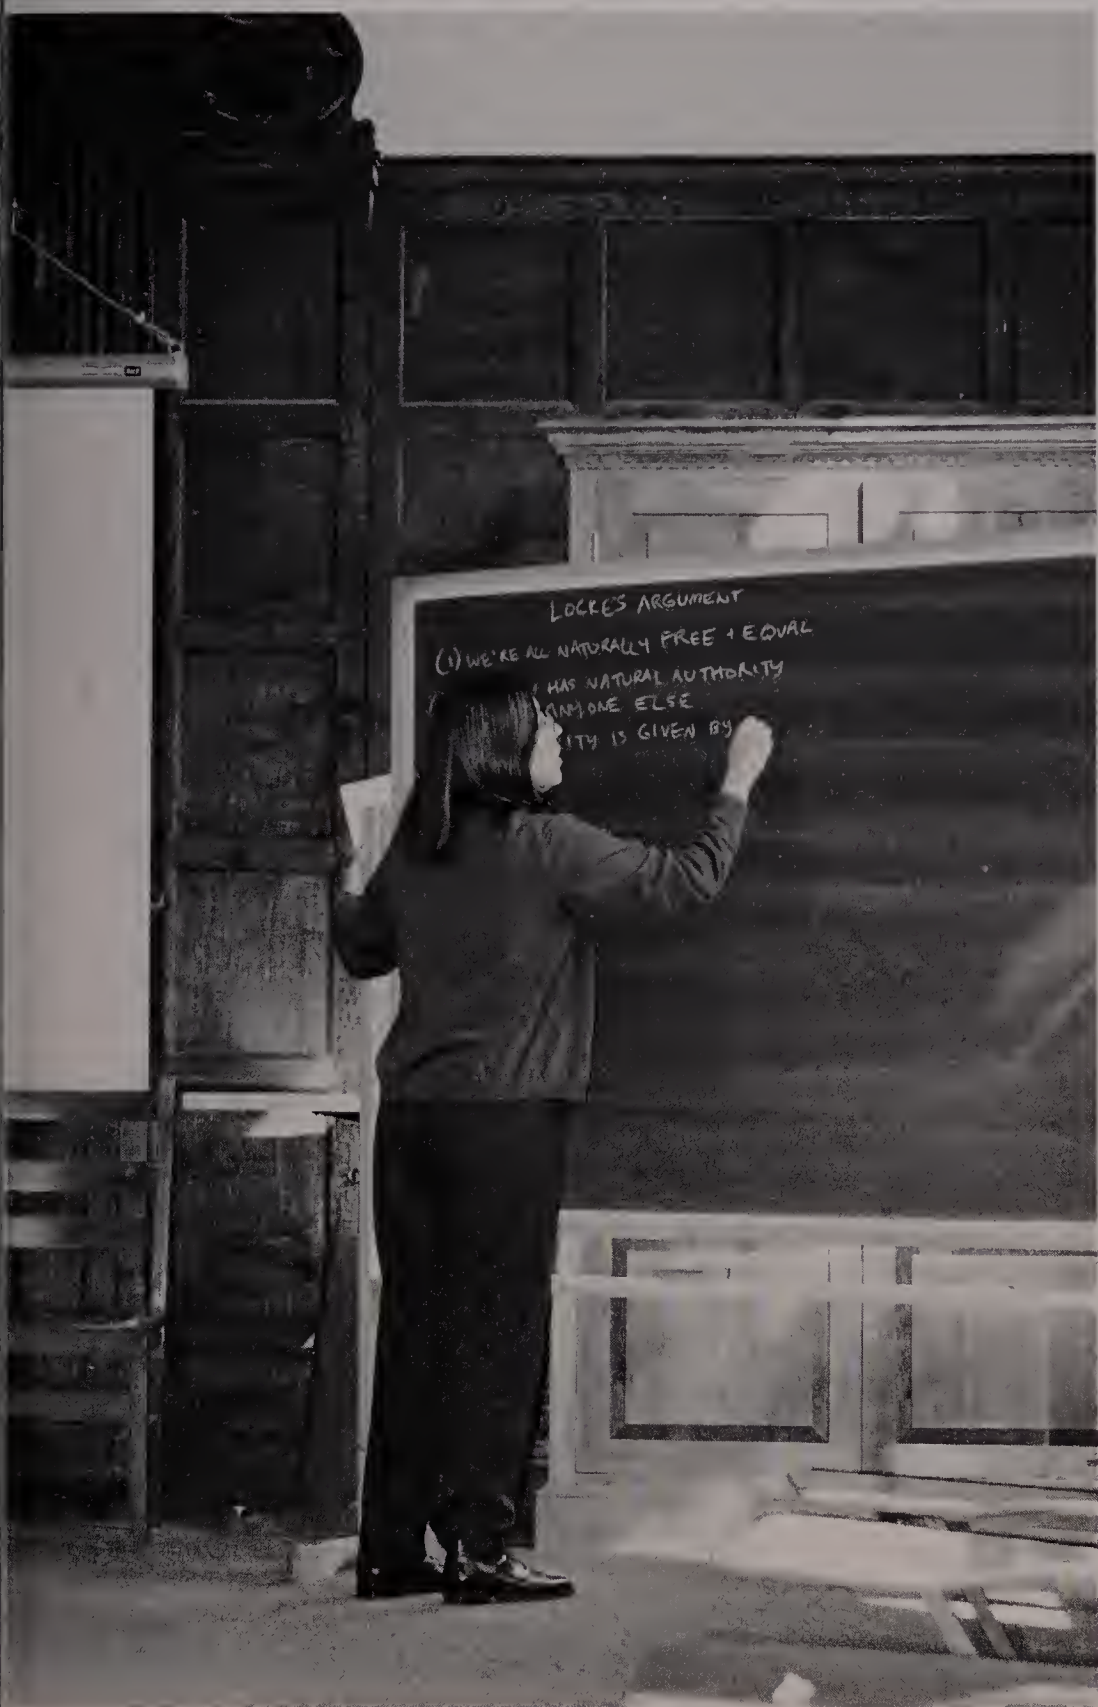 LOCKE'S ARGUMENT
(1) WE'RE ALL NATURALLY FREE + EQUAL
HAS NATURAL AUTHORITY
ANYONE ELSE
ITY IS GIVEN BY